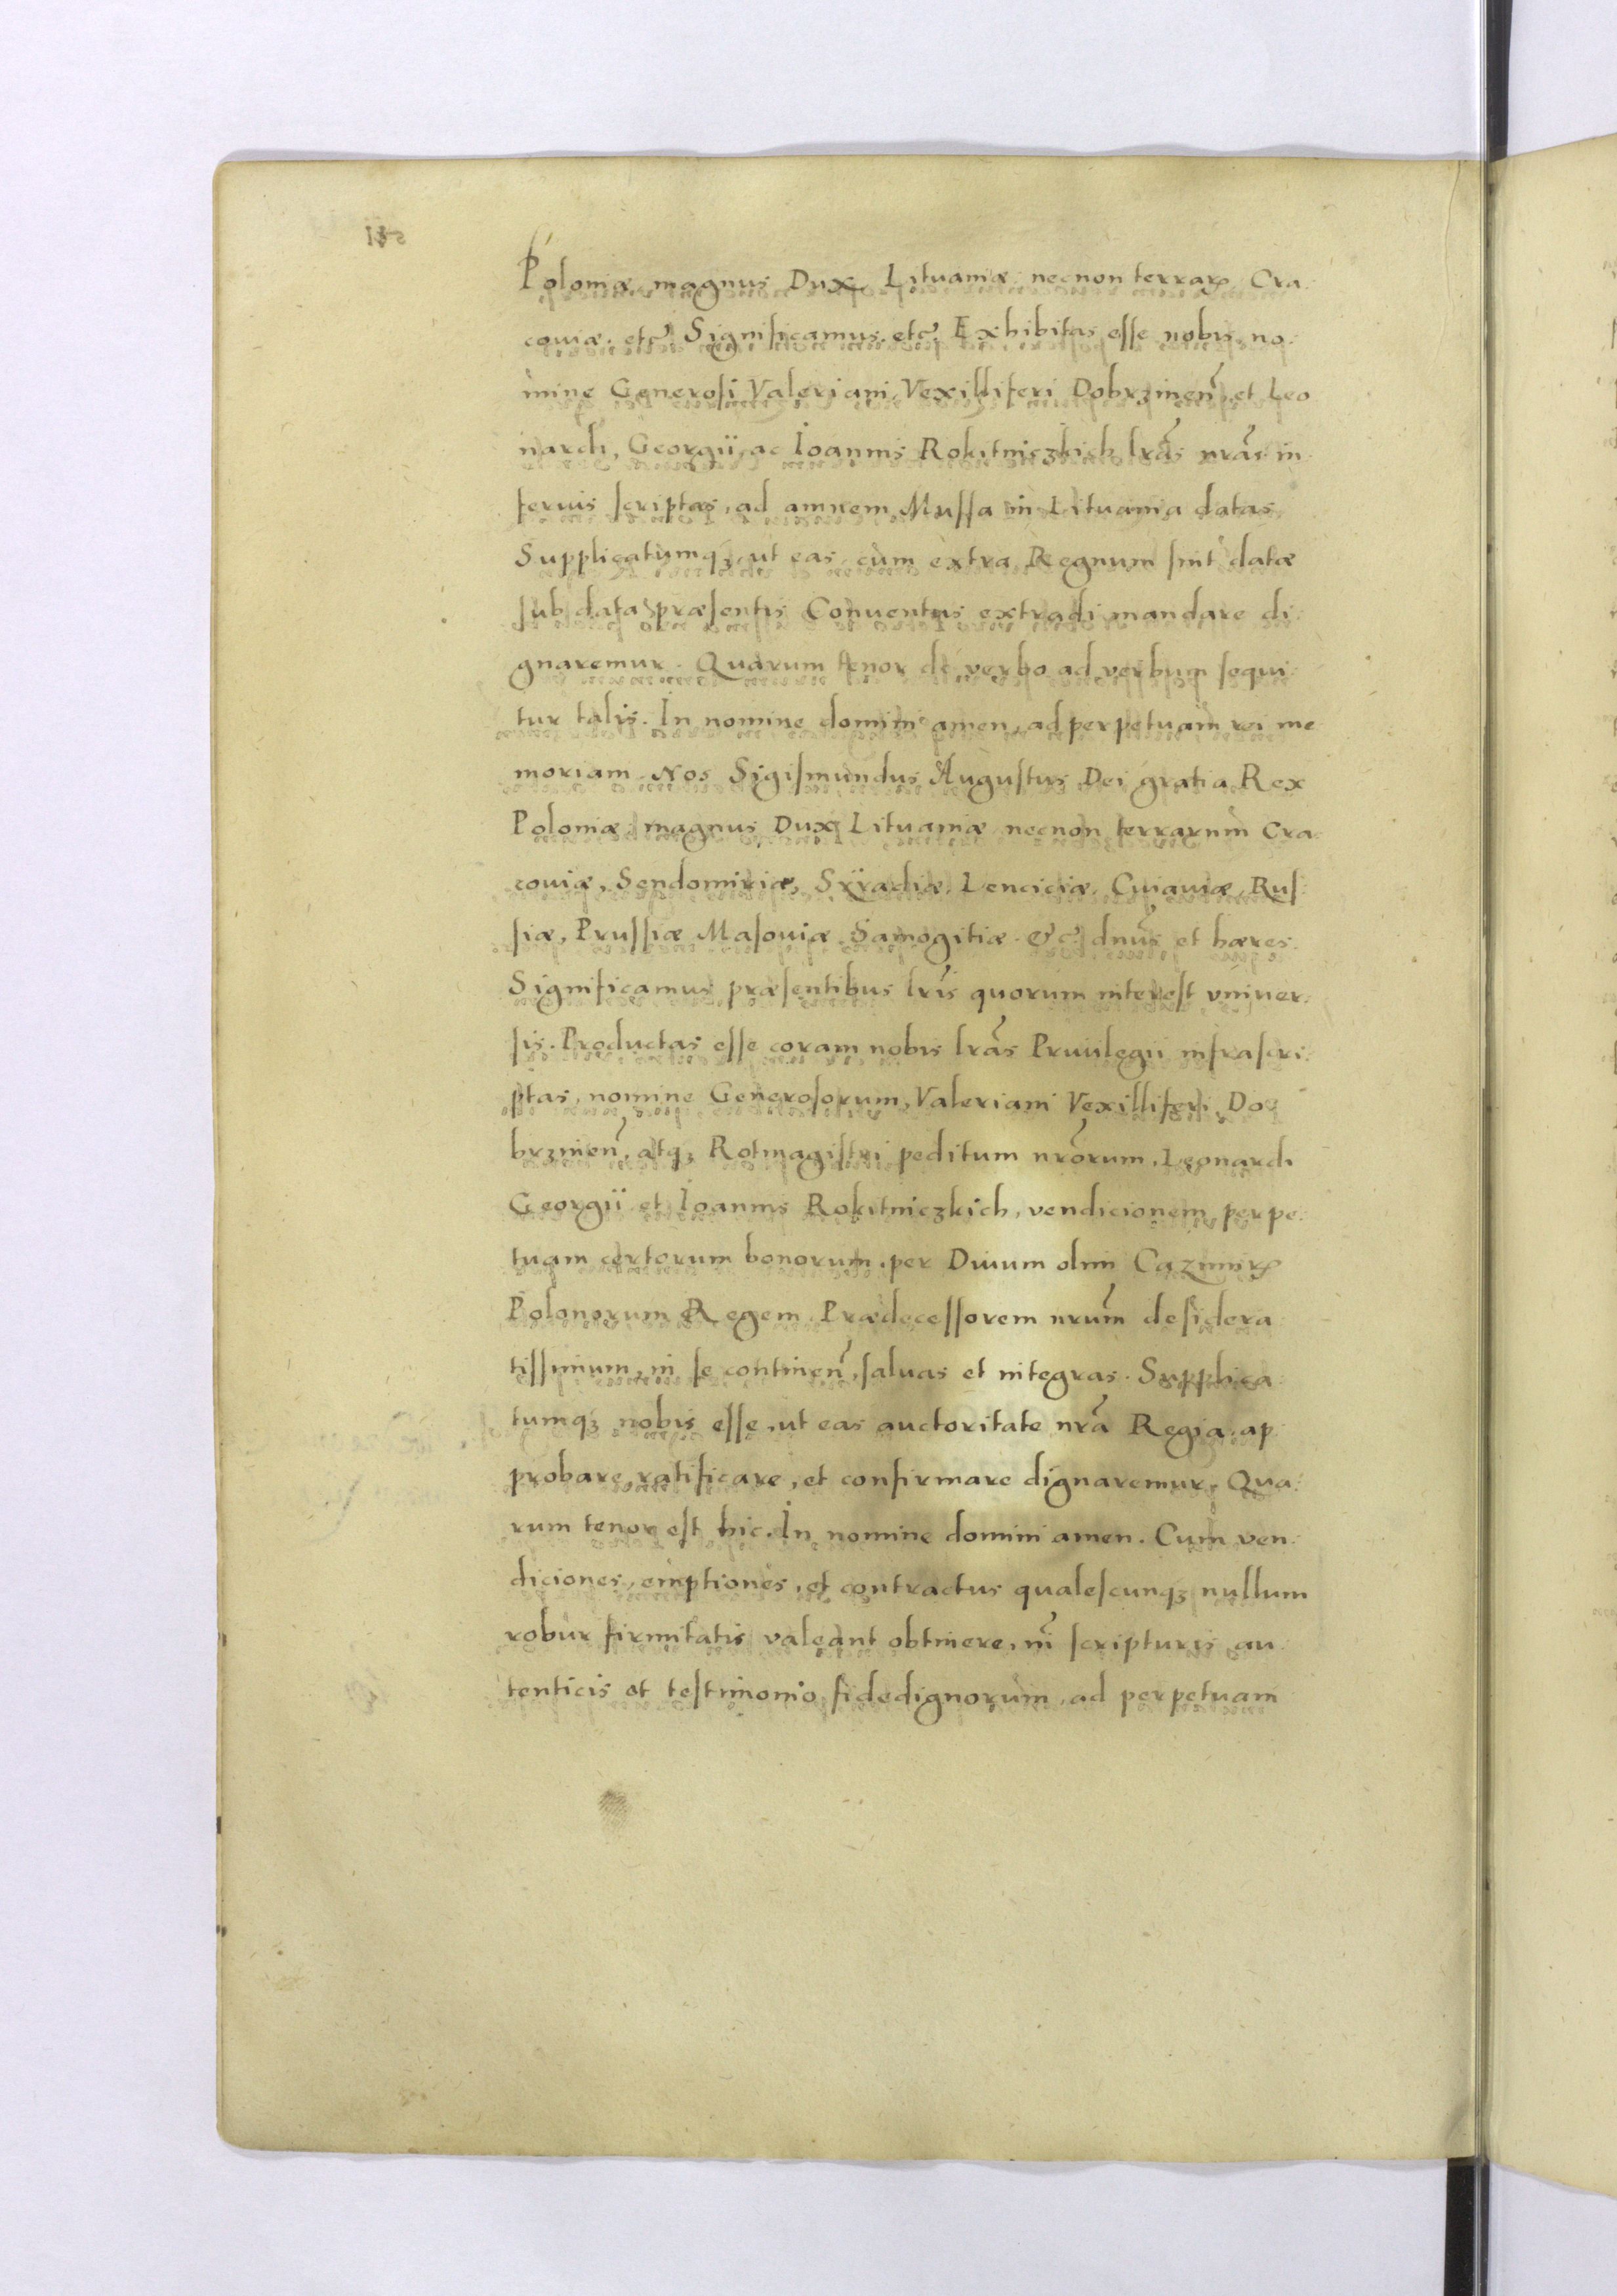 Poloniæ magnus Dux Lituaniæ necnon terrarꝝ Cra
couiæ. etc. Significamus. etc. Exhibitas esse nobis no
mine Generosi Valeriani Vexilliferi Dobrzineñ, et Leo
nardi, Georgii, ac Ioannis Rokitniczkich lr̃as nr̃as in
ferius scriptas, ad amnem Mussa in Lituania datas
Supplicatumqꝫ, ut eas, cum extra Regnum sint datæ
sub data præsentis Conuentus extradi mandare di
gnaremur. Quarum tenor de verbo ad verbum sequi
tur talis. In nomine domini amen, ad perpetuam rei me
moriam. Nos Sigismundus Augustus Dei gratia Rex
Poloniæ magnus Dux Lituaniæ necnon terrarum Cra
couiæ, Sendomiriæ, Syradiæ, Lenciciæ, Cuiauiæ, Rus
siæ, Prussiæ Masouiæ Samogitiæ. &c. dnũs et hæres.
Significamus præsentibus lr̃is quorum interest vniuer
sis. Productas esse coram nobis lr̃as Priuilegii infrascri
ptas, nomine Generosorum, Valeriani Vexilliferi Do
brzineñ, atqꝫ Rotmagistri peditum nr̃orum, Leonardi
Georgii et Ioannis Rokitniczkich, vendicionem perpe
tuam certorum bonorum, per Diuum olim Cazimirꝝ
Polonorum Regem Prædecessorem nr̃um desidera
tissimum, in se contineñ, saluas et integras. Supplica
tumqꝫ nobis esse, ut eas auctoritate nr̃a Regia ap
probare, ratificare, et confirmare dignaremur, Qua
rum tenor est hic. In nomine domini amen. Cum ven
diciones, emptiones, et contractus qualescunqꝫ nullum
robur firmitatis valeant obtinere, ni̾ scripturis au
tenticis et testimonio fidedignorum, ad perpetuam